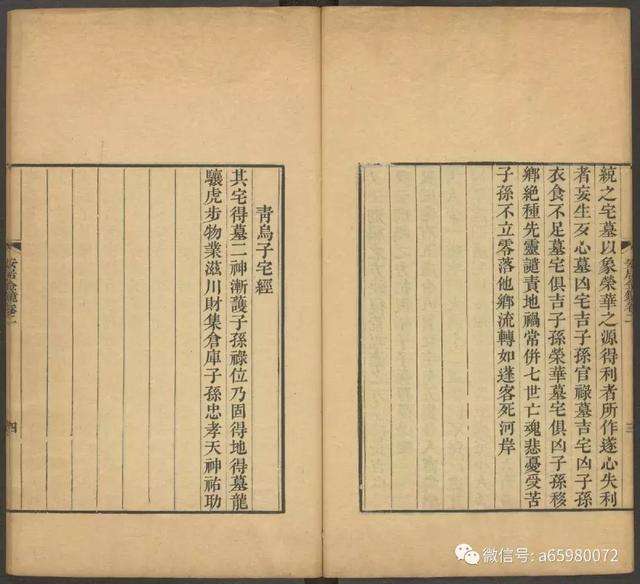 統之宅墓以象榮華之源得利者所作遂心失利
者妄生歹心墓凶宅吉子孫官祿墓吉宅凶子孫
衣食不足墓宅俱吉子孫榮華墓宅俱凶子孫移
鄉絶種先靈譴責地禍常併七世亡魂悲憂受苦
子孫不立零落他鄉流轉如蓬客死河岸
三
青烏子宅經
其宅得墓二神漸護子孫祿位乃固得地得墓龍
驤虎步物業滋川財集倉庫子孫忠孝天神祐助
安居金鏡卷一
四
微信号: a65980072